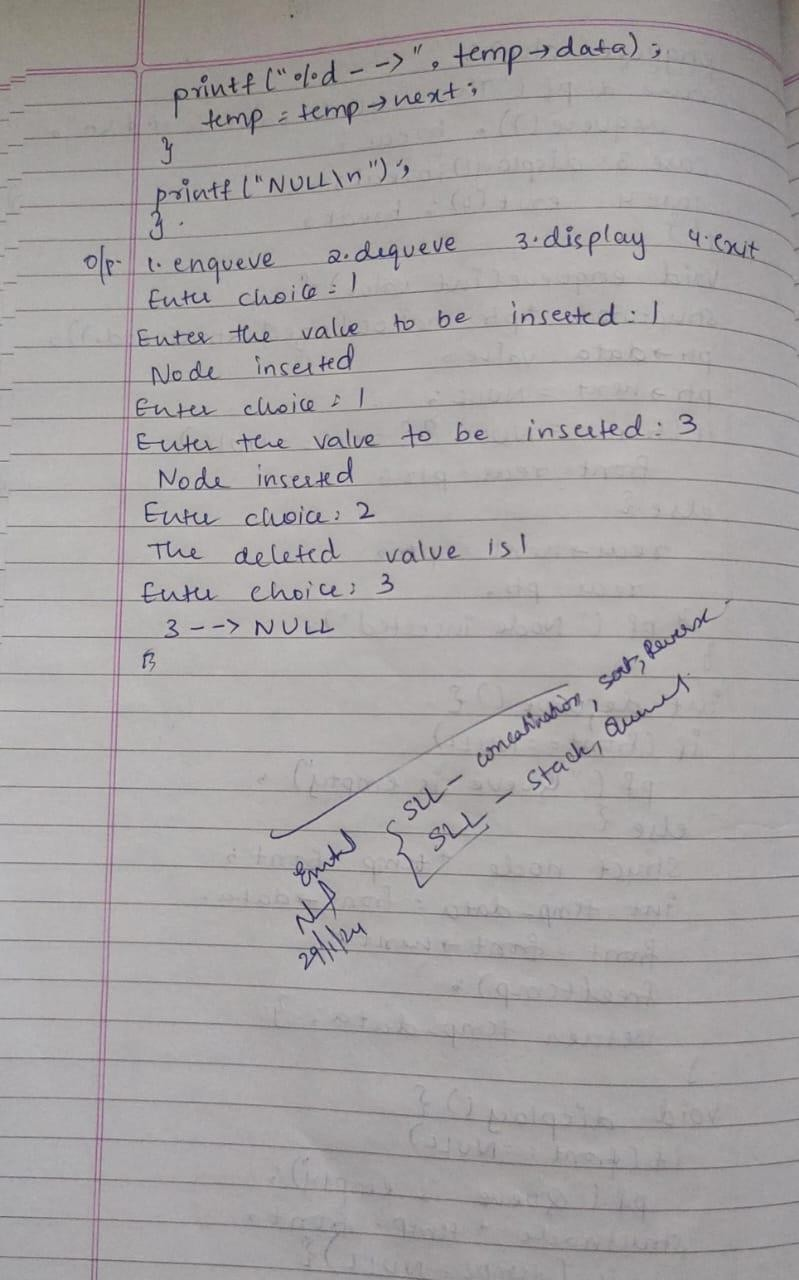 printf ("%d -->", temp→data);
temp = temp→next;
}
printf ("NULL\n");
}.
o/p- 1. enqueue 2. dequeue 3. display 4. exit
Enter choice = 1
Enter the value to be inserted : 1
Node inserted
Enter choice : 1
Enter the value to be inserted : 3
Node inserted
Enter choice : 2
The deleted value is 1
Enter choice : 3
3 --> NULL
SLL - concatination, sort, Reverse
SLL - Stack, Queue
29/1/24